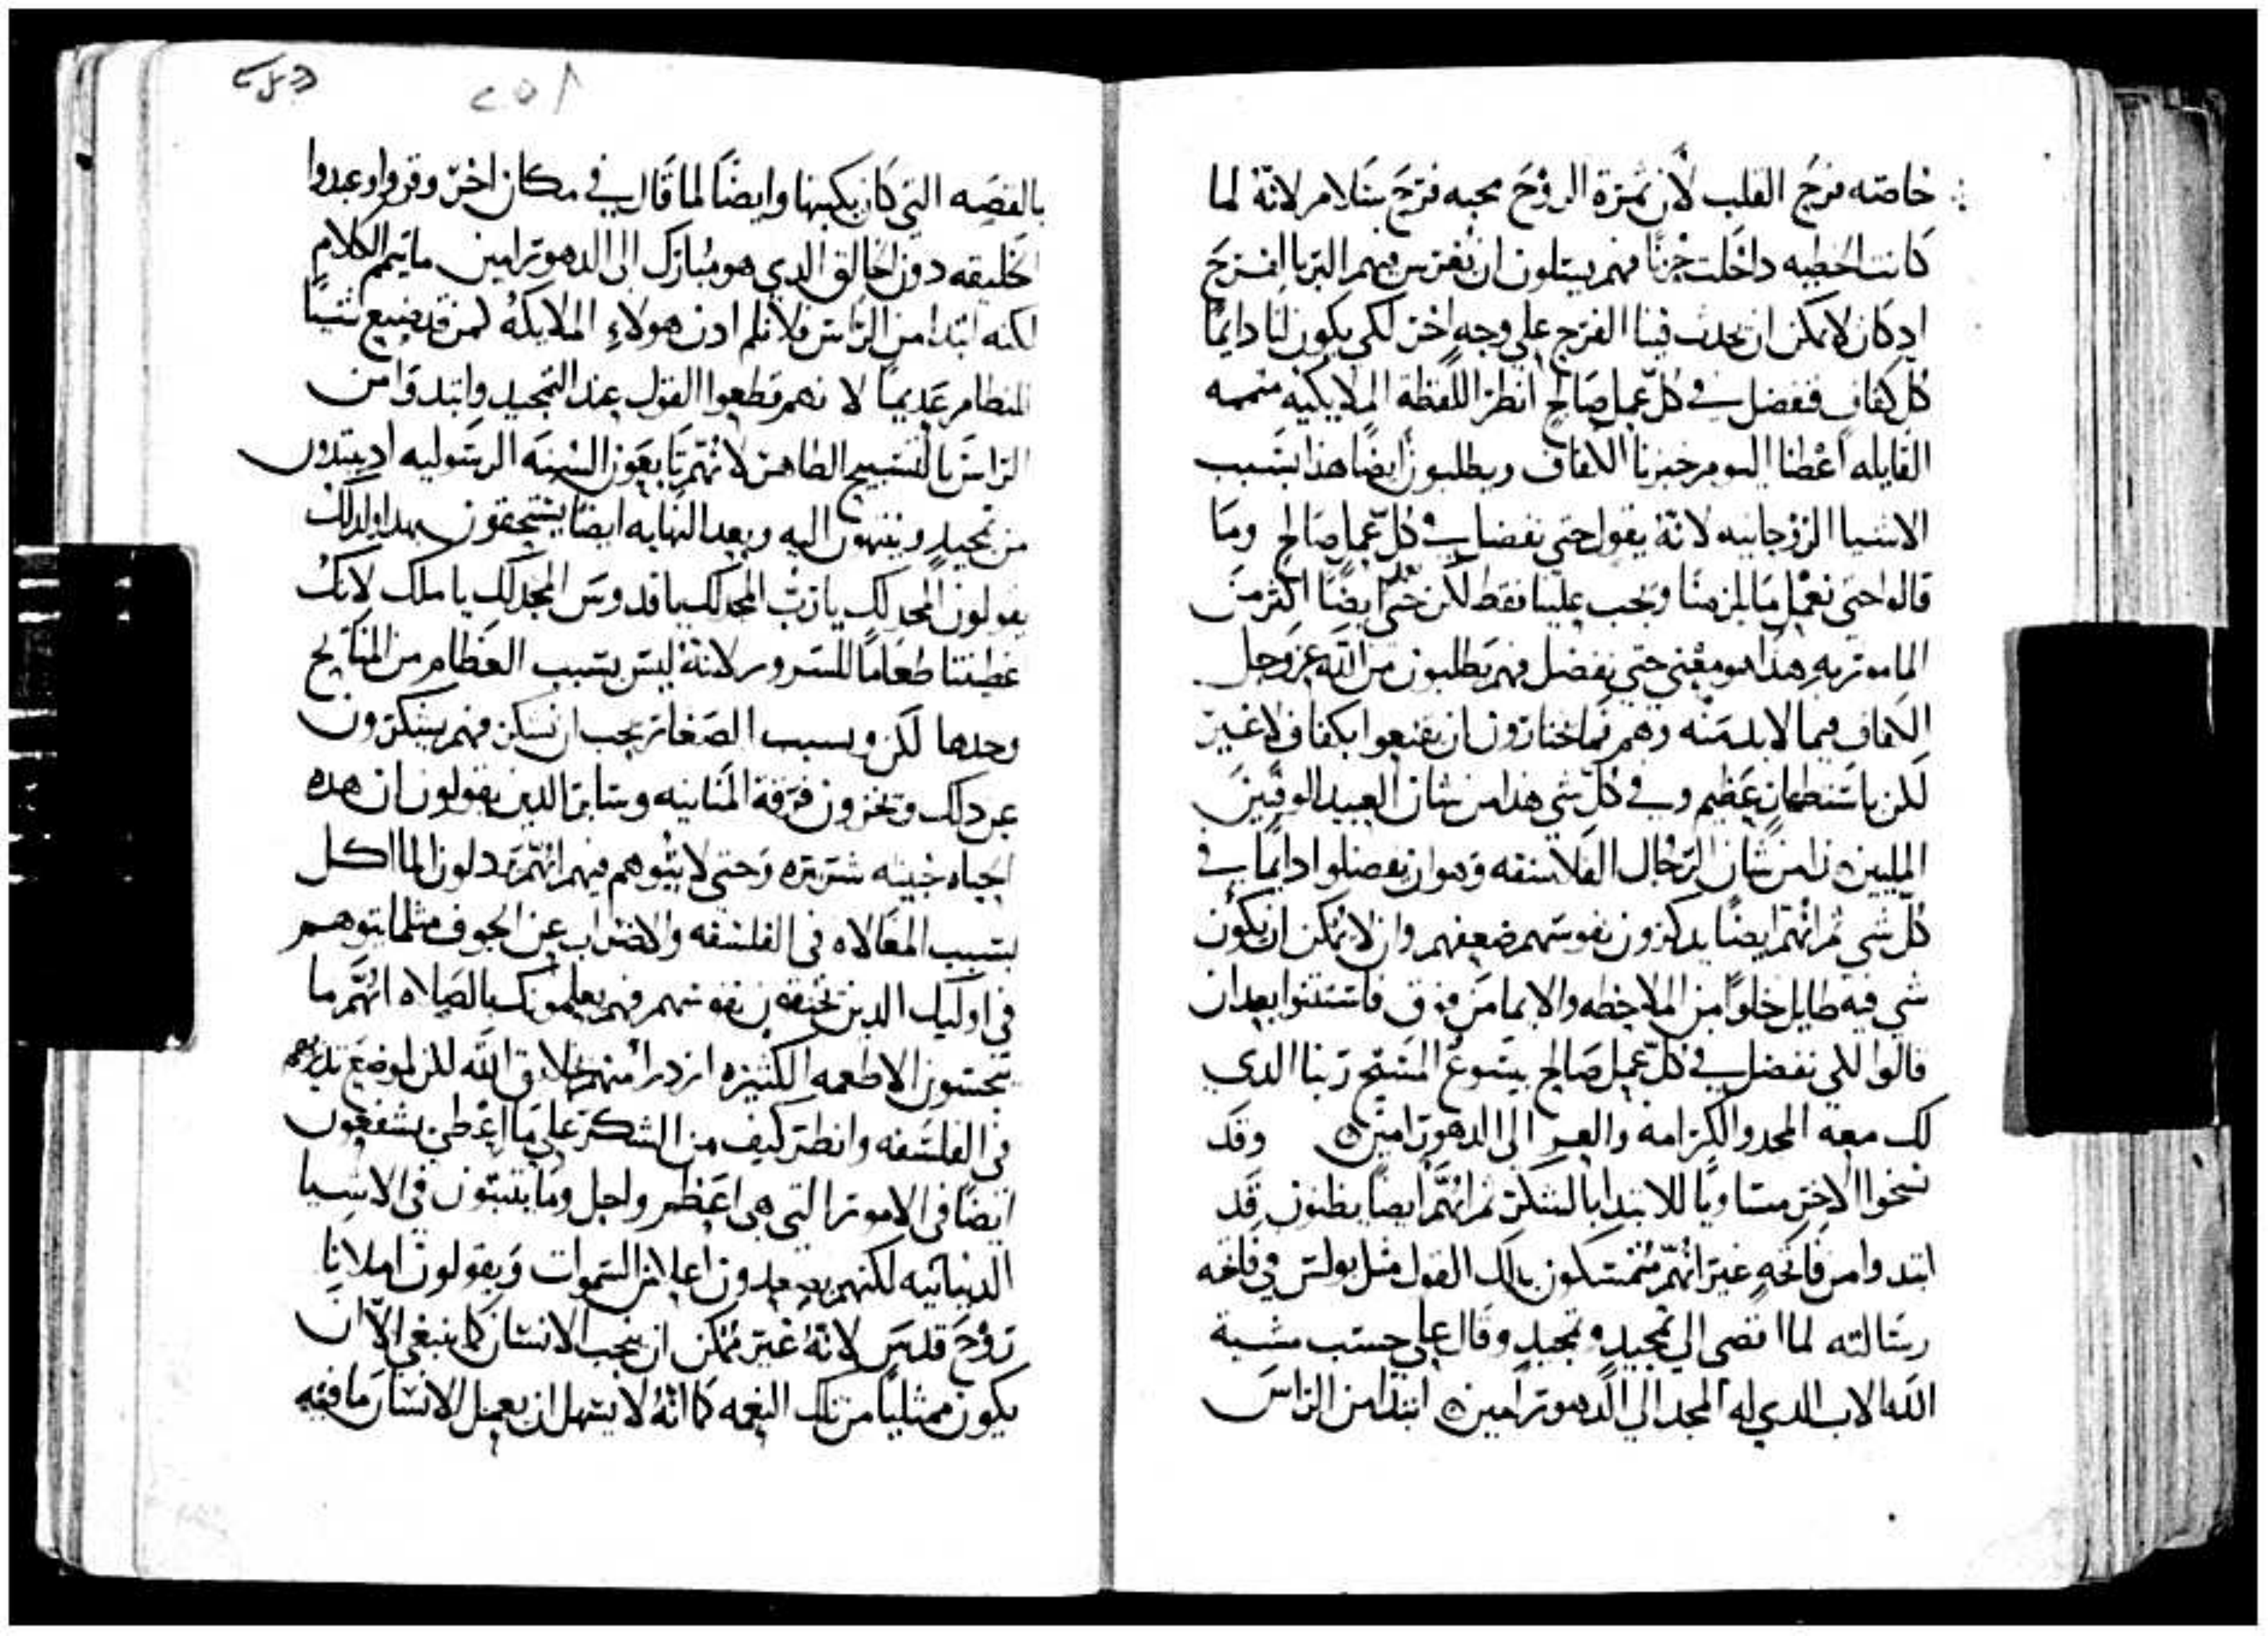 خاصته فرح القلب لان ثمرة الروح محبه فرح سلام لانه لما
كانت الخطيه داخلت حزنا فهم يسلون ان يغرس فيهم البر بالفرح
اد كان لا يمكن ان يحدث فينا الفرح علي وجه اخر لكي يكون لنا دايما
كل كفاف فنفضل في كل عمل صالح انظر اللفظة الملايكيه متممه
القايله اعطنا اليوم خبزنا الكفاف ويطلبون ايضا هذا بسبب
الاشيا الروحانيه لانه يقول حتي نفضل في كل عمل صالح وما
قالوا حتي نعمل ما يلزمنا ويجب علينا فقط لكن حتي ايضا اكثر من
المامور به هذا هو معني حتي نفضل فهم يطلبون من الله عز وجل
الكفاف فيما لا بد منه وهم فما يختارون ان يقنعوا بكفاف لا غير
لكن باستطهار عظيم وفي كل شي هذا من شان العبيد الوفيين
المليين هذا من شان الرجال الفلاسفه وهو ان يفضلوا دايما في
كل شي ثم انهم ايضا يدكرون نفوسهم ضعفهم وان لا يمكن ان يكون
شي فيه طايل خلوا من الملاحظه والايما من فوق فاستثنوا بعد ان
قالوا لكي نفضل في كل عمل صالح بيسوع المسيح ربنا الدي
لك معه المجد والكرامه والعز الي الدهور امين وقد
نحوا الاخر مساويا للابتدا بالشكر ثم انهم ايضا يظنون قد
ابتدوا من فاتحه غير انهم متمسكون بدلك القول مثل بولس في فاتحه
رسالته لما افضي الي تمجيد وتمجيد وقال علي حسب مشية
الله الاب الدي له المجد الي الدهور امين ابتدا من الراس
بالقصه التي كان يكتبها وايضا لما قال في مكان اخر وقروا وعبدوا
الخليقه دون الخالق الدي هو مبارك الي الدهور امين ما يتمم الكلام
لكنه ابتدا من الراس فلا نلم ادن هولاء الملايكه كمن قد صنع شيا
للنظام عديما لا نهم قطعوا القول عند التمجيد وابتدوا من
الراس بالتسبيح الطاهر لانهم تابعون السنه الرسوليه اد يبتدون
من تمجيد وينتهون اليه وبعد النهايه ايضا يستحقون بهدا ولدلك
يقولون المجد لك يا رب المجد لك يا قدوس المجد لك يا ملك لانك
اعطيتنا طعاما للسرور لانه ليس بسبب العظام من المنايح
وحدها لكن وبسبب الصغار يجب ان نشكر فهم يشكرون
عن دلك ويخزون فرقة المنانيه وساير الدين يقولون ان هده
الحياه خبيثه شريره وحتي لا يتوهم فيهم انهم يردلون المااكل
بسبب المغالاه في الفلسفه والاضراب عن الجوف مثلما يتوهم
في اوليك الدين يخنقون نفوسهم فهم يعلمونك بالصلاه انهم ما
يجتنبون الاطعمه الكثيره ازدرا منهم بخلايق الله لكن لموضع تدبيرهم
في الفلسفه وانظر كيف من الشكر علي ما اعطي يشفعون
ايضا في الامور التي هي اعظم واجل وما يثبتون في الاشيا
الدنيانيه لكنهم يصعدون اعلا من السموات ويقولون املانا
روح قدس لانه غير ممكن ان ينجب الانسان كما ينبغي الا ان
يكون ممتليا من تلك النعمه كما انه لا يسهل ان يعمل الانسان ما فيه
٢٥٨